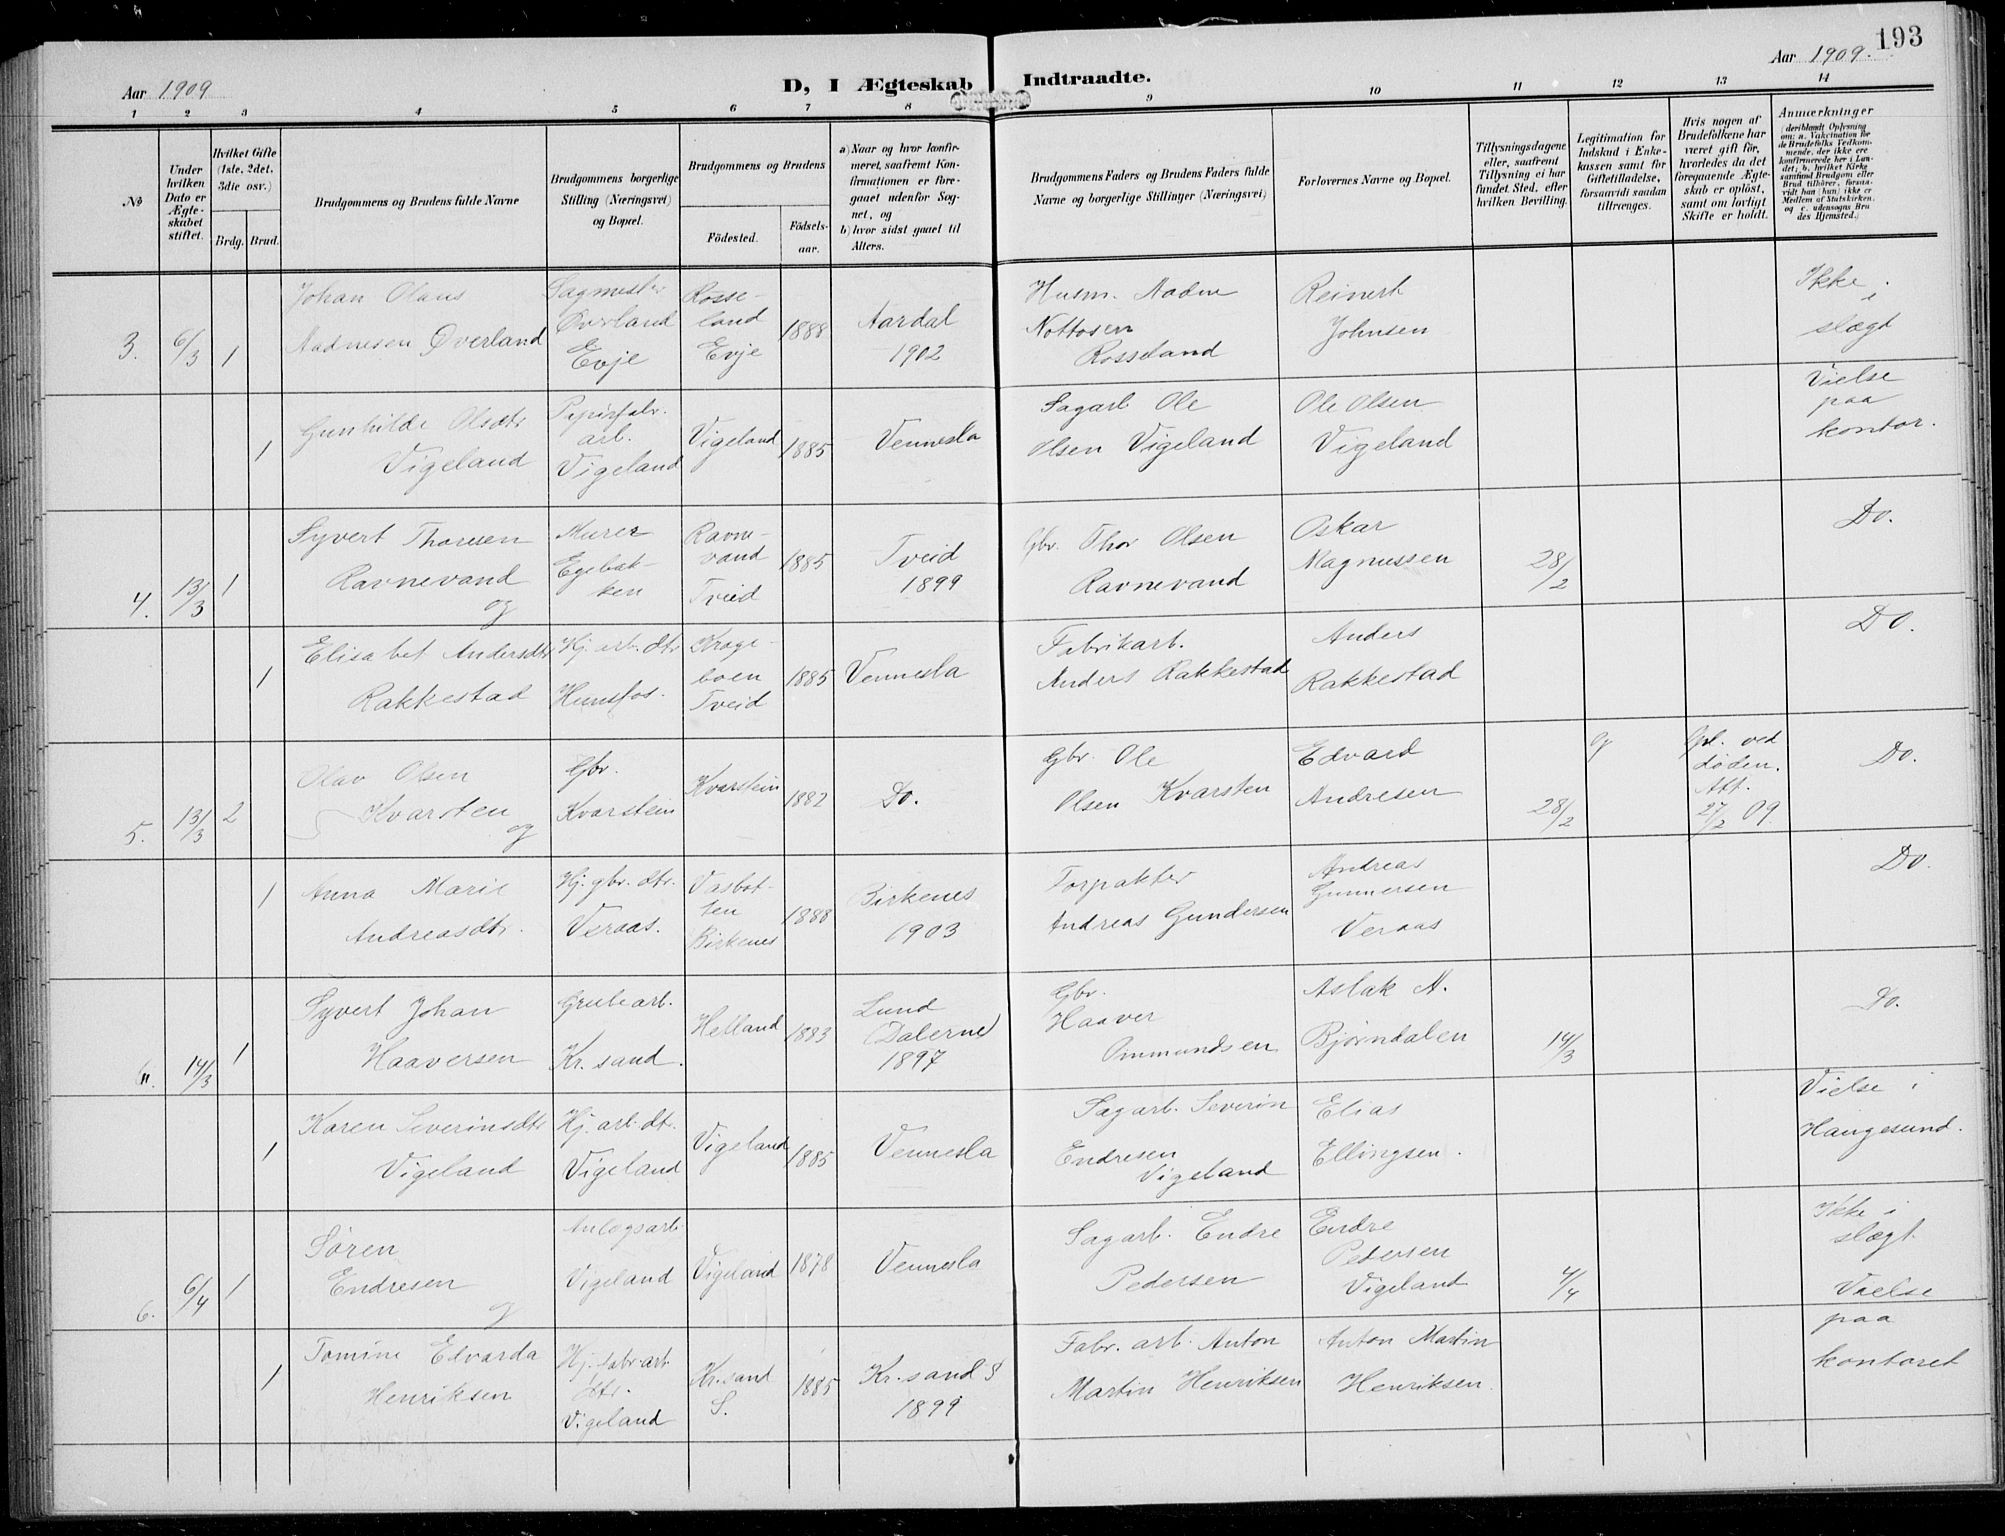 193
Aar 1909
D, I Ægteskab Indtraadte.
Aar 1909.
1 2 3 4 5 6 7 8 9 10 11 12 13 14
No
Under hvilken Dato er Ægteskabet stiftet.
Hvilket Gifte (1ste, 2det, 3die osv.)
Brdg. Brud.
Brudgommens og Brudens fulde Navne
Brudgommens borgerlige Stilling (Næringsvei) og Bopæl.
Brudgommens og Brudens
Fødested.
Fødselsaar.
a) Naar og hvor konfirmeret, saafremt Konfirmationen er foregaaet udenfor Sognet, og
b) hvor sidst gaaet til Alters.
Brudgommens Faders og Brudens Faders fulde Navne og borgerlige Stillinger (Næringsvei)
Forlovernes Navne og Bopæl.
Tillysningsdagene eller, saafremt Tillysning ei har fundet Sted, efter hvilken Bevilling.
Legitimation for Indskud i Enkekassen samt for Giftetilladelse, forsaavidt saadan tiltrænges.
Hvis nogen af Brudefolkene har været gift før, hvorledes da det foregaaende Ægteskab er opløst, samt om lovligt Skifte er holdt.
Anmerkninger
(deriblandt Oplysning om: a. Vakcination for de Brudefolks Vedkommende, der ikke ere konfirmerede her i Landet; b. hvilket Kirkesamfund Brudgom eller Brud tilhører, forsavidt han (hun) ikke er Medlem af Statskirken. og c. udensogns Brudes Hjemsted.)
3. 6/3 1
Johan Olaus
Aadnesen Øverland
Sagmester
Øverland
Evje
Rosseland
Evje
1888
Aardal
1902
Husm. Aadne
Nottosen
Rosseland
Reinert
Johnsen
Ikke i
slægt
1
Gunhilde Olsdtr
Vigeland
Papirfabr.
arb.
Vigeland
Vigeland
1885
Vennesla
Sagarb. Ole
Olsen Vigeland
Ole Olsen
Vigeland
Vielse
paa
kontor.
4. 13/3 1
Syvert Thorsen
Ravnevand
og
Murer
Egebakken
Ravnevand
Tveid
1885
Tveid
1899
Gbr. Thor Olsen
Ravnevand
Oskar
Magnussen
28/2
Do.
1
Elisabet Andersdtr
Rakkestad
Hj. arb. dtr
Hunsfos.
Krageboen
Tveid
1885
Vennesla
Fabrikarb.
Anders Rakkestad
Anders
Rakkestad
Do.
5. 13/3 2
Olav Olsen
Kvarsten
og
Gbr.
Kvarstein
Kvarstein
1882
Do.
Gbr. Ole
Olsen Kvarsten
Edvard
Andresen
28/2
Opl. ved
døden.
Att.
27/2 09.
Do.
1
Anna Marie
Andreasdtr.
Hj. gbr. dtr.
Veraas.
Vasbotten
Birkenes
1888
Birkenes
1903
Forpakter
Andreas Gundersen
Andreas
Gunnersen
Veraas
Do.
6. 14/3 1
Syvert Johan
Haaversen
Grubearb.
Kr. sand.
Helland
1883
Lund
(Dalerne)
1897
Gbr.
Haaver
Ommundsen
Aslak A.
Bjørndalen
14/3
Do.
1
Karen Severinsdtr
Vigeland
Hj. arb. dtr.
Vigeland
Vigeland
1885
Vennesla
Sagarb. Severin
Endresen
Vigeland
Elias
Ellingsen.
Vielse i
Haugesund.
6. 6/4 1
Søren
Endresen
og
Anlægsarb.
Vigeland
Vigeland
1878
Vennesla
Sagarb. Endre
Pedersen
Endre
Pedersen
Vigeland
4/4
Ikke i
slægt.
Vielse
paa
kontoret
1
Tomine Edvarda
Henriksen
Hj. fabr. arb.
dtr.
Vigeland
Kr. sand
S.
1885
Kr. sand S
1899
Fabr. arb. Anton
Martin Henriksen
Anton Martin
Henriksen.